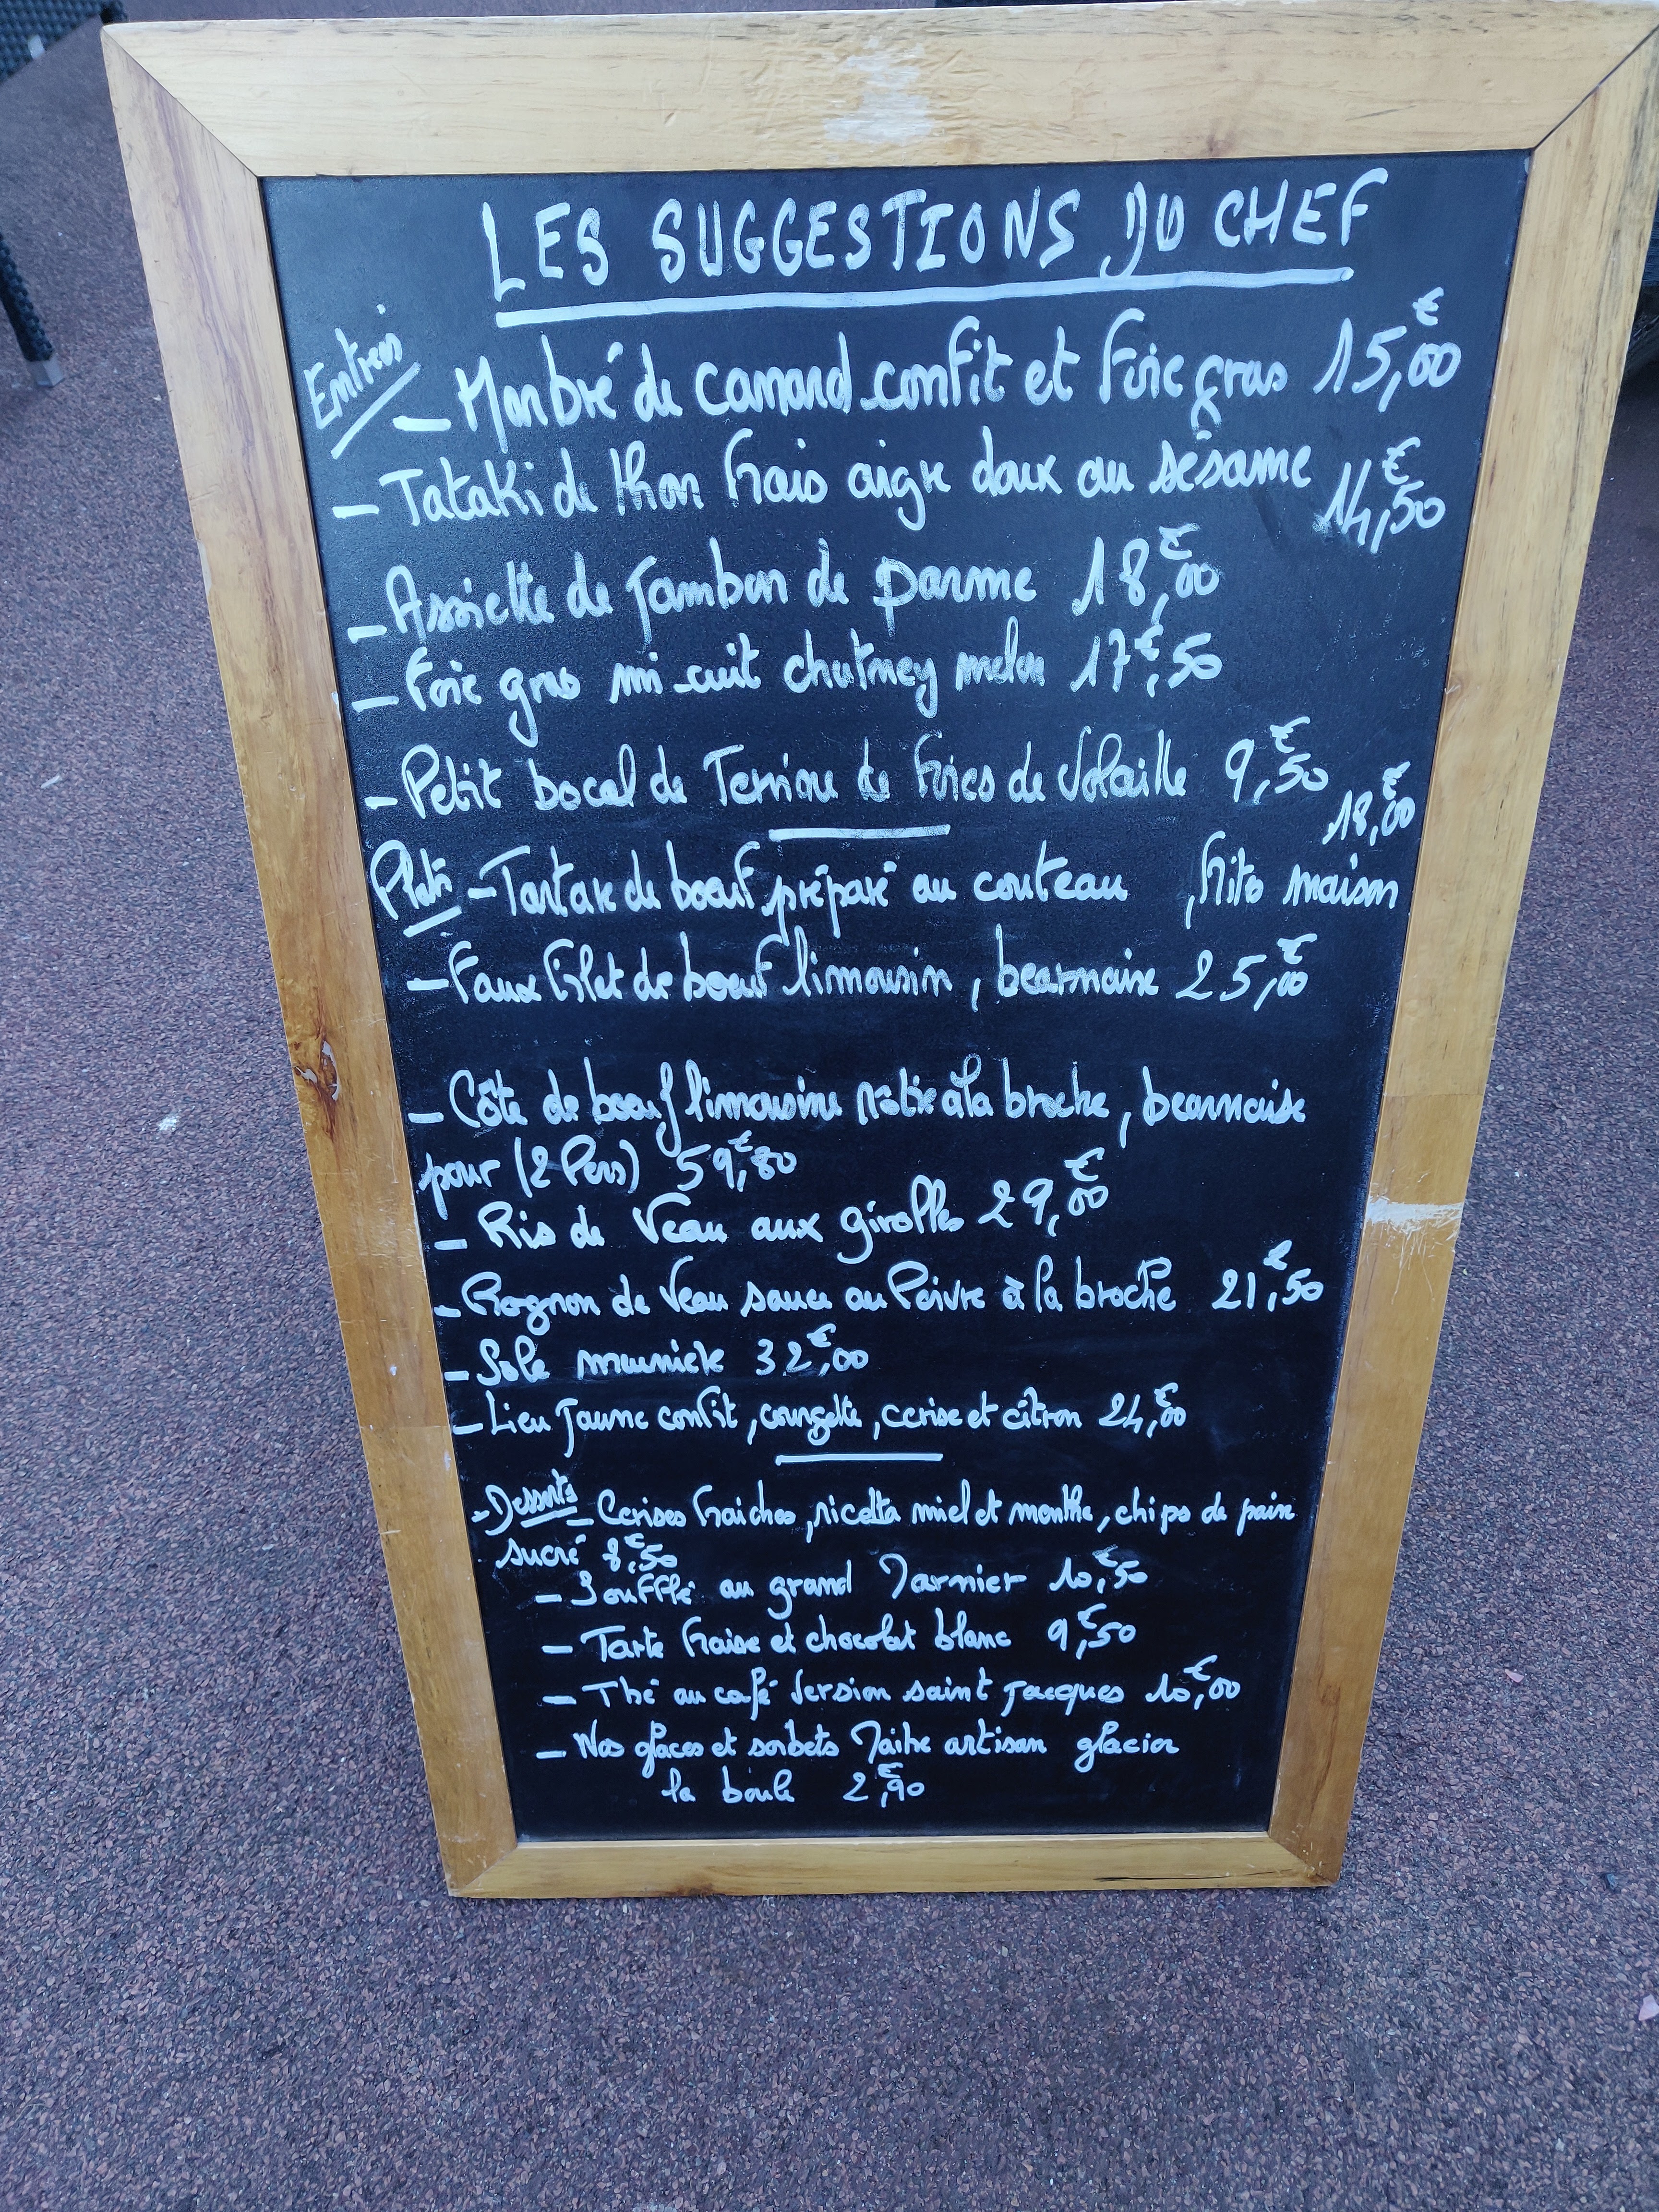 LES SUGGESTIONS DU CHEF
Entrées
- Marbré de canard confit et foie gras 15,00€
- Tataki de thon frais aigre doux au sésame 14,50€
- Assiette de Jambon de parme 18,00€
- Foie gras mi cuit chutney melon 17,50€
- Petit bocal de Terrine de foies de Volaille 9,50€
Plats - Tartare de boeuf préparé au couteau, frites maison 18,00€
- Faux filet de boeuf limousin, bearnaise 25,00€
- Côte de boeuf limousine rôtie à la broche, bearnaise
pour (2 Pers) 59,80€
- Ris de Veau aux girolles 29,00€
- Rognon de Veau sauce au Poivre à la broche 21,50€
- Sole meunière 32,00€
- Lieu Jaune confit, courgette, cerise et citron 24,00€
- Desserts - Cerises fraiches, ricotta miel et menthe, chips de pain
sucré 8,50€
- Soufflé au grand Marnier 10,50€
- Tarte fraise et chocolat blanc 9,50€
- Thé ou café Version saint Jacques 10,00€
- Nos glaces et sorbets Maitre artisan glacier
la boule 2,90€